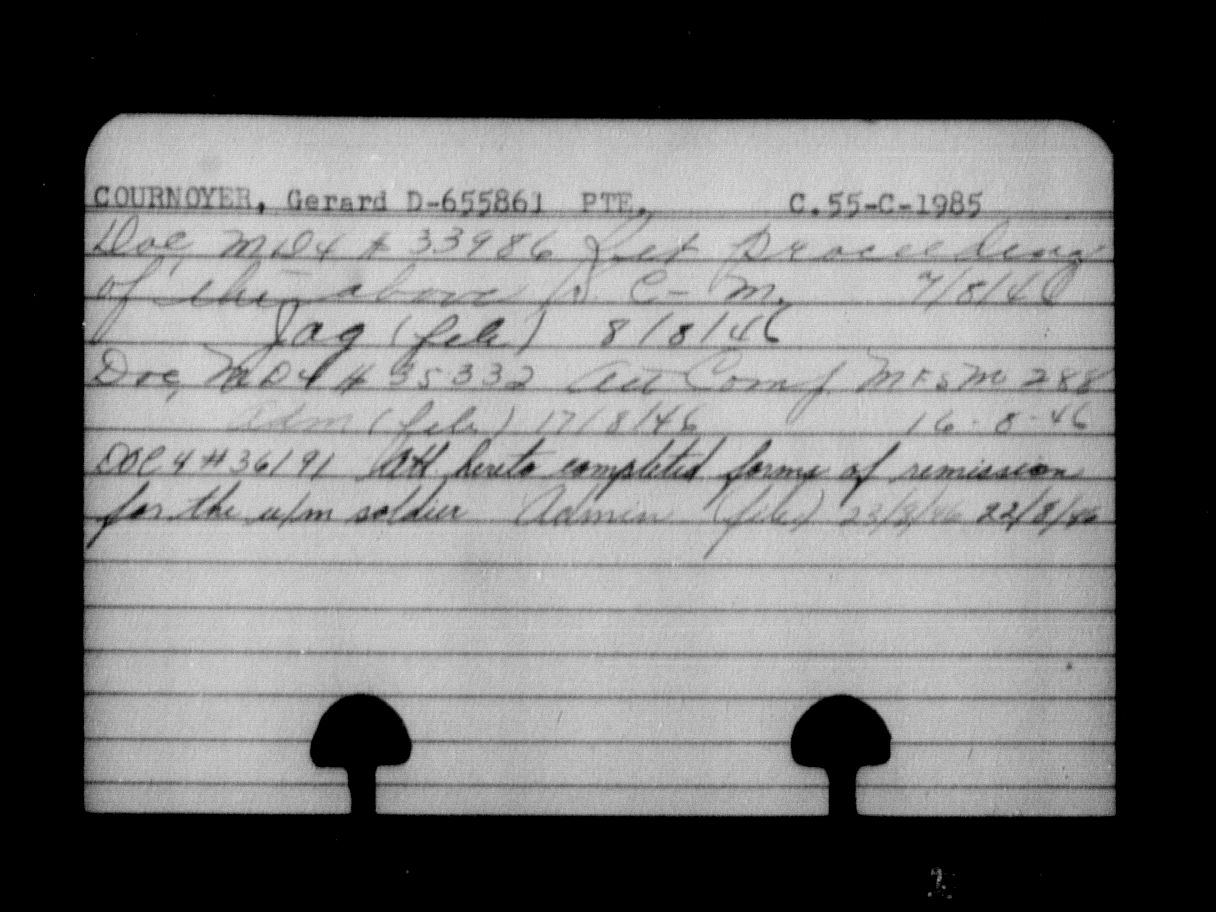 COURNOYER, Gerard D-655861 PTE. C.55-C-1985
Doc, MD4 # 33986 Ret proceedings
of the above C-M. 7/8/46
Jag (file) 8/8/46
Doc, MD4 # 35332 Att Comp. MFSM 288
Adm (file) 17/8/46 16-8-46
DOC 4 #36191 Att. hereto completed forms of remission
for the a/m soldier Admin (file) 23/8/46 22/8/46